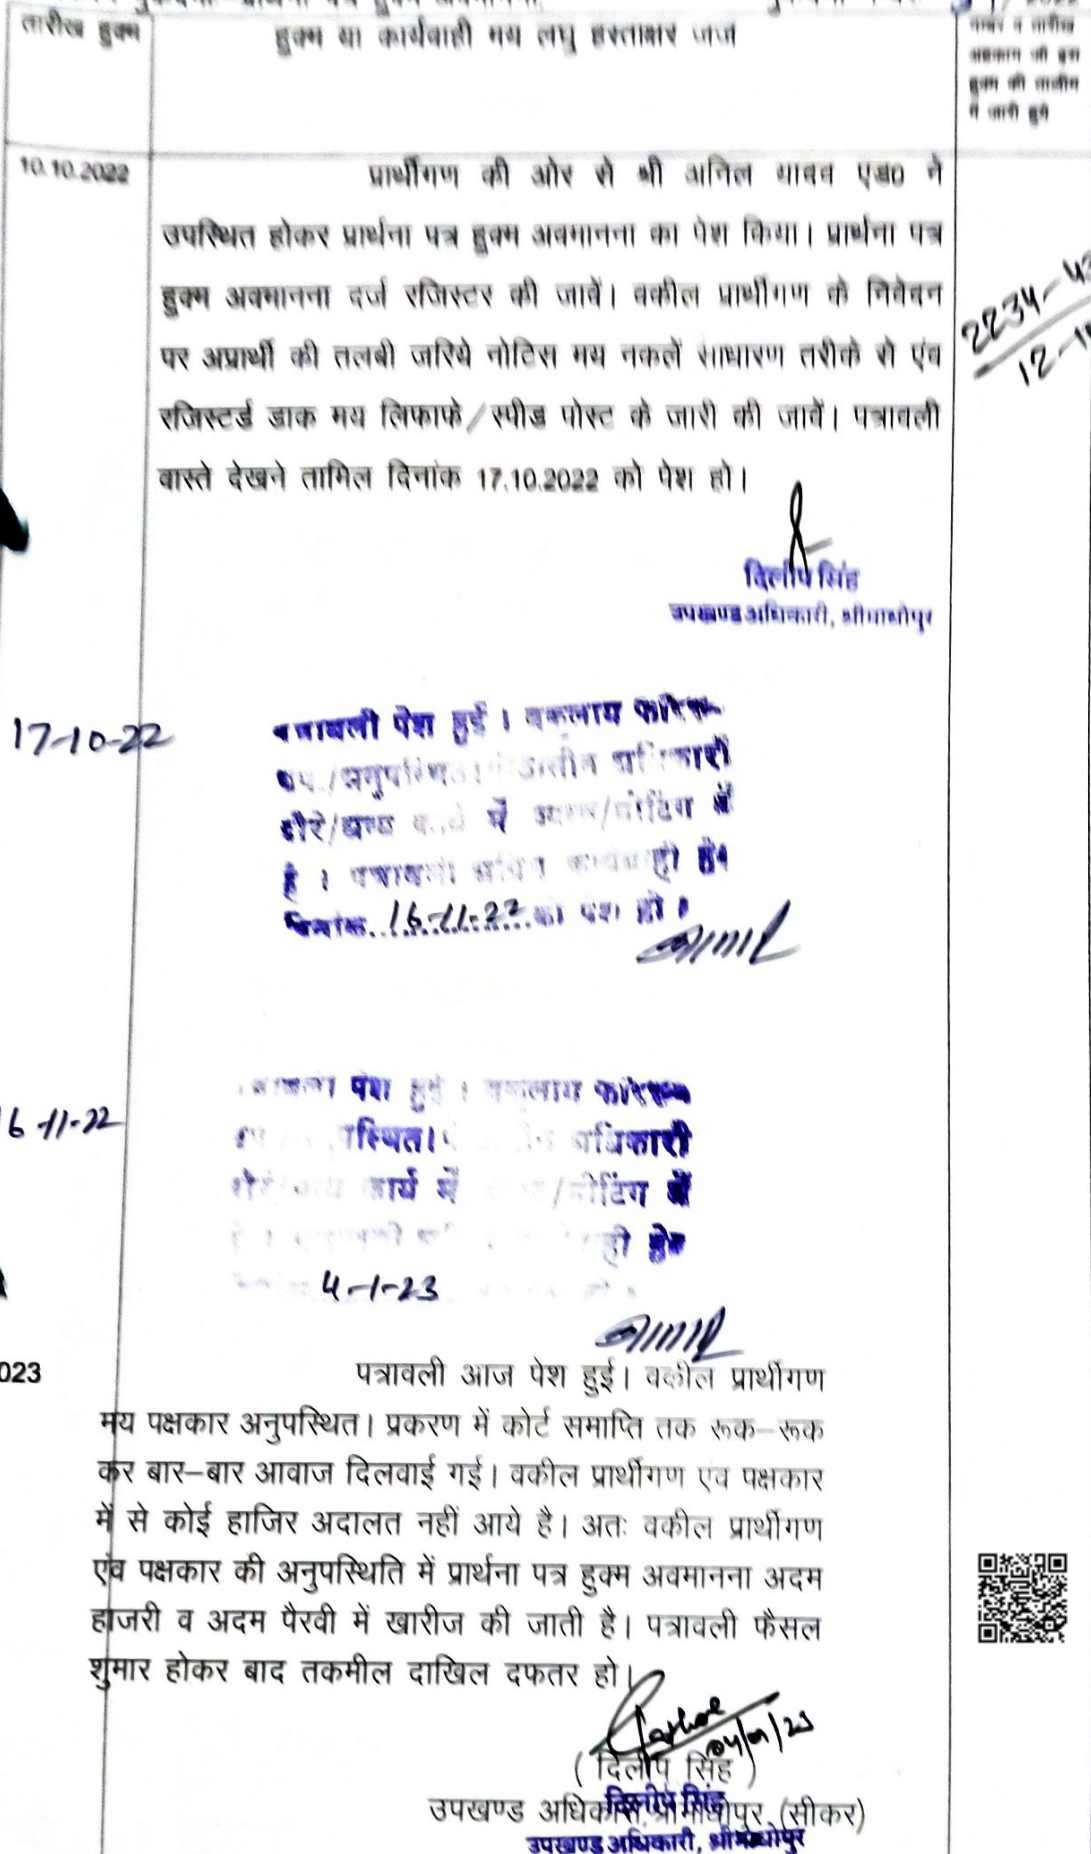 तारीख हुक्म
हुक्म या कार्यवाही मय लघु हस्ताक्षर जज
नम्बर व तारीख
अहकाम जो इस
हुक्म की तामील
में जारी हुये
10.10.2022
प्रार्थीगण की ओर से श्री अनिल यादव एड0 ने
उपस्थित होकर प्रार्थना पत्र हुक्म अवमानना का पेश किया। प्रार्थना पत्र
हुक्म अवमानना दर्ज रजिस्टर की जावें। वकील प्रार्थीगण के निवेदन
पर अप्रार्थी की तलबी जरिये नोटिस मय नकलें साधारण तरीके से एंव
रजिस्टर्ड डाक मय लिफाफे/स्पीड पोस्ट के जारी की जावें। पत्रावली
वास्ते देखने तामिल दिनांक 17.10.2022 को पेश हो।
2234-
12-
दिलीप सिंह
उपखण्ड अधिकारी, श्रीमाधोपुर
17-10-22
पत्रावली पेश हुई । वकलाय फरिक
उप./अनुपस्थित। अधिकारी
दौरे/अन्य कार्य में /मीटिंग में
है । पत्रावली कार्यवाही हेतु
दिनांक..16-11-22..को पेश हो ।
6-11-22
पेश हुई । वकलाय फरिक
पस्थित। अधिकारी
कार्य में /मीटिंग में
ही हेतु
4-1-23
023
पत्रावली आज पेश हुई। वकील प्रार्थीगण
मय पक्षकार अनुपस्थित। प्रकरण में कोर्ट समाप्ति तक रूक-रूक
कर बार-बार आवाज दिलवाई गई। वकील प्रार्थीगण एंव पक्षकार
में से कोई हाजिर अदालत नहीं आये है। अतः वकील प्रार्थीगण
एंव पक्षकार की अनुपस्थिति में प्रार्थना पत्र हुक्म अवमानना अदम
हाजरी व अदम पैरवी में खारीज की जाती है। पत्रावली फैसल
शुमार होकर बाद तकमील दाखिल दफतर हो।
04/01/23
( दिलीप सिंह )
उपखण्ड अधिकारी, श्रीमाधोपुर (सीकर)
दिलीप सिंह
उपखण्ड अधिकारी, श्रीमाधोपुर